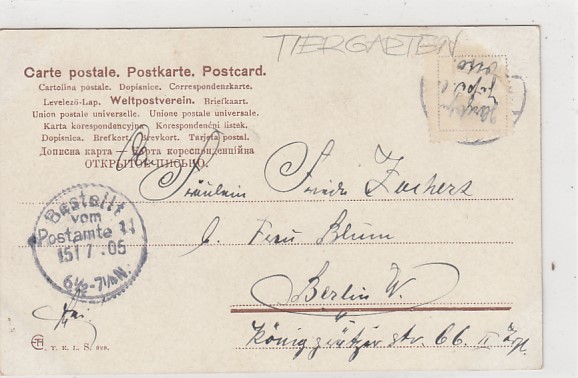 TIERGARTEN
Carte postale. Postkarte. Postcard.
Cartolina postale. Dopisnice. Correspondenzkarte.
Levelező-Lap. Weltpostverein. Briefkaart.
Union postale universelle. Unione postale universale.
Karta korespondencyjna. Korespondenční lístek.
Dopisnica. Brefkort. Brevkort. Tarjeta postal.
Дописна карта Карта кореспонденційна
ОТКРЫТОЕ ПИСЬМО.
Fräulein Frieda Zachert
b. Frau Blum
Berlin W.
Königgrätzer str. 66. II
Bestellt
vom
Postamte 11
15/7.05
6½-7½N.
T. E. L. S.